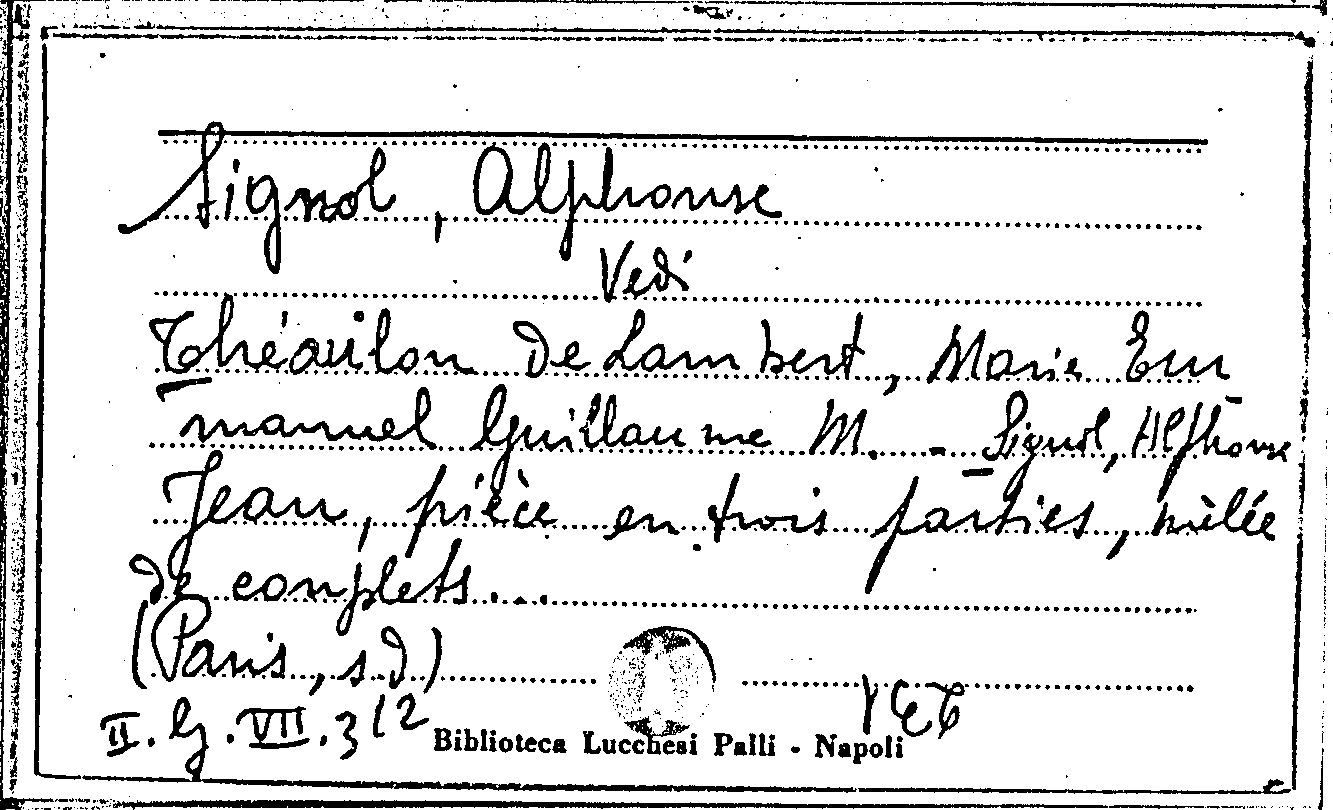 Signol, Alphonse
Vedi
Théaulon De Lambert, Marie Em
manuel Guillaume M. - Signol, Alphonse
Jean, pièce en trois parties, mêlée
de couplets...
(Paris, s d)
II. G. VII. 3 12
Biblioteca Lucchesi Palli - Napoli